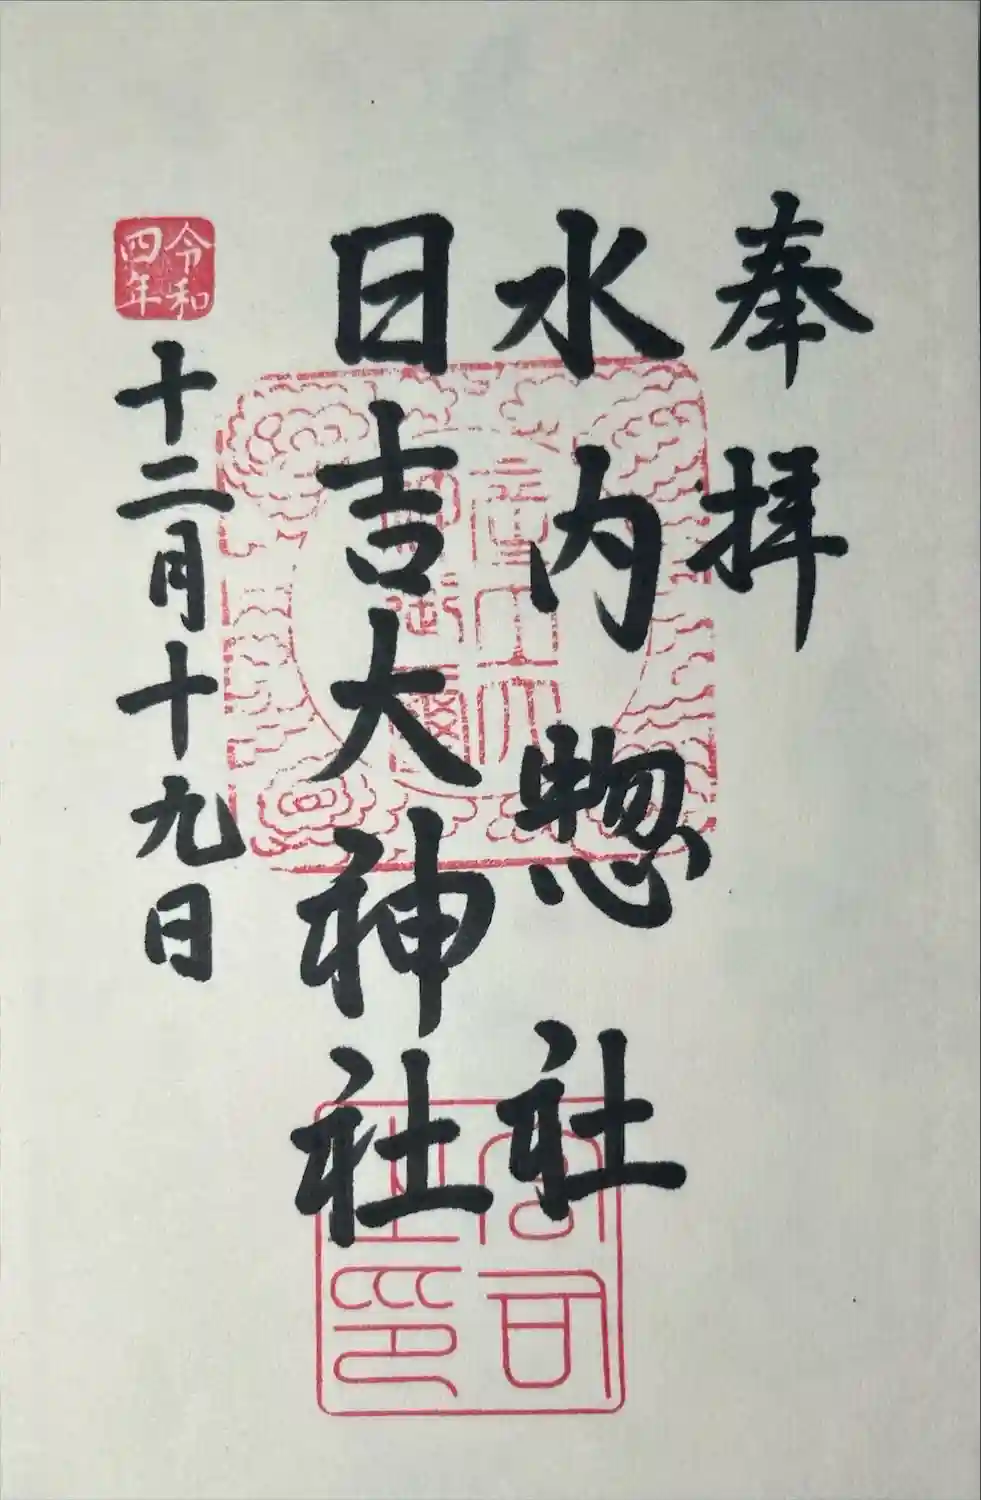 奉拝
水内惣社
日吉大神社
令和四年
十二月十九日
宮司之印